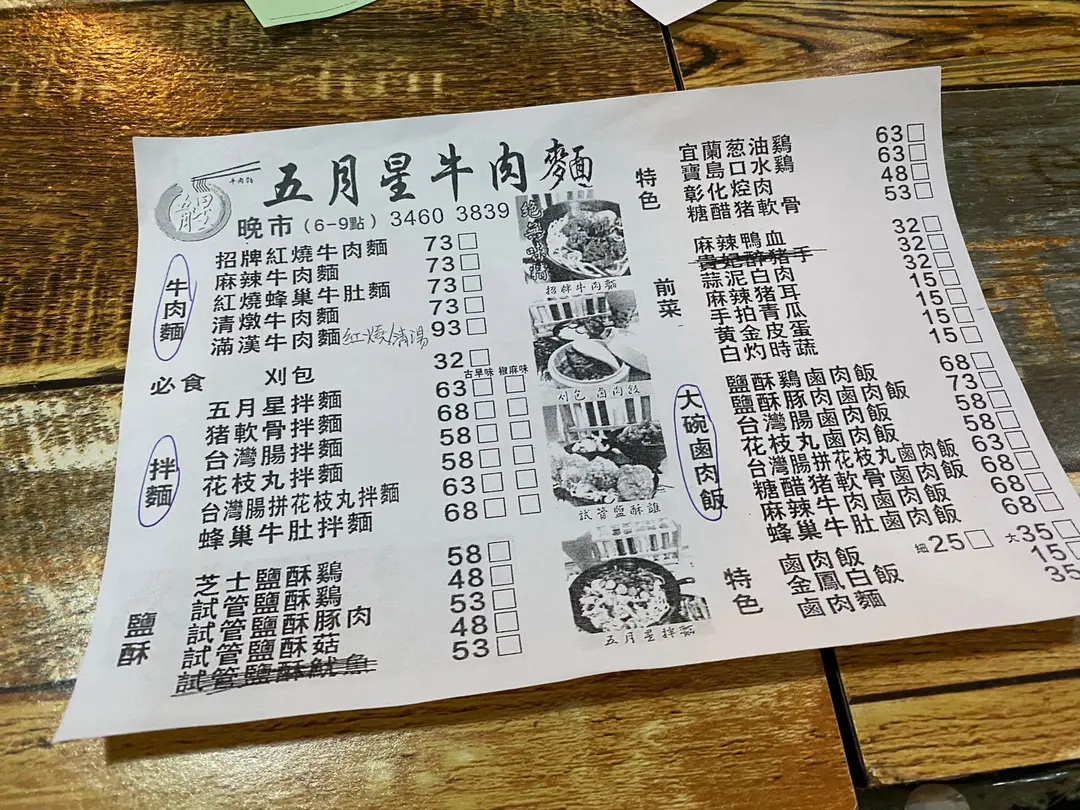 五月星牛肉麵
牛肉麵
五月星
晚市 (6-9點) 3460 3839
牛肉麵
招牌紅燒牛肉麵 73
麻辣牛肉麵 73
紅燒蜂巢牛肚麵 73
清燉牛肉麵 73
滿漢牛肉麵 紅燒/清湯 93
必食 刈包 32
古早味 椒麻味
拌麵
五月星拌麵 63
豬軟骨拌麵 68
台灣腸拌麵 58
花枝丸拌麵 58
台灣腸拼花枝丸拌麵 63
蜂巢牛肚拌麵 68
鹽酥
芝士鹽酥鷄 58
試管鹽酥鷄 48
試管鹽酥豚肉 53
試管鹽酥菇 48
試管鹽酥魷魚 53
絕無味精
招牌牛肉麵
刈包 鹵肉飯
試管鹽酥雞
五月星拌麵
特色
宜蘭葱油鷄 63
寶島口水鷄 63
彰化焢肉 48
糖醋豬軟骨 53
前菜
麻辣鴨血 32
貴妃醉豬手 32
蒜泥白肉 32
麻辣豬耳 15
手拍青瓜 15
黃金皮蛋 15
白灼時蔬 15
大碗鹵肉飯
鹽酥鷄鹵肉飯 68
鹽酥豚肉鹵肉飯 73
台灣腸鹵肉飯 58
花枝丸鹵肉飯 58
台灣腸拼花枝丸鹵肉飯 63
糖醋豬軟骨鹵肉飯 68
麻辣牛肉鹵肉飯 68
蜂巢牛肚鹵肉飯 68
特色
鹵肉飯 細25 大35
金鳳白飯 15
鹵肉麵 35